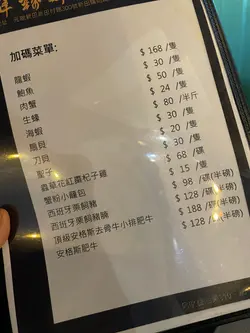 加碼菜單:
龍蝦 $ 168 /隻
鮑魚 $ 30 /隻
肉蟹 $ 50 /隻
生蠔 $ 24 /隻
海蝦 $ 80 /半斤
扇貝 $ 30 /隻
刀貝 $ 20 /隻
聖子 $ 30 /隻
蟲草花紅棗杞子雞 $ 68 /碟
蟹粉小籠包 $ 15 /隻
西班牙栗飼豬 $ 98 /碟(半磅)
西班牙栗飼豬腩 $ 128 /碟(半磅)
頂級安格斯去骨牛小排肥牛 $ 188 /碟(半磅)
安格斯肥牛 $ 128 /碟(半磅)